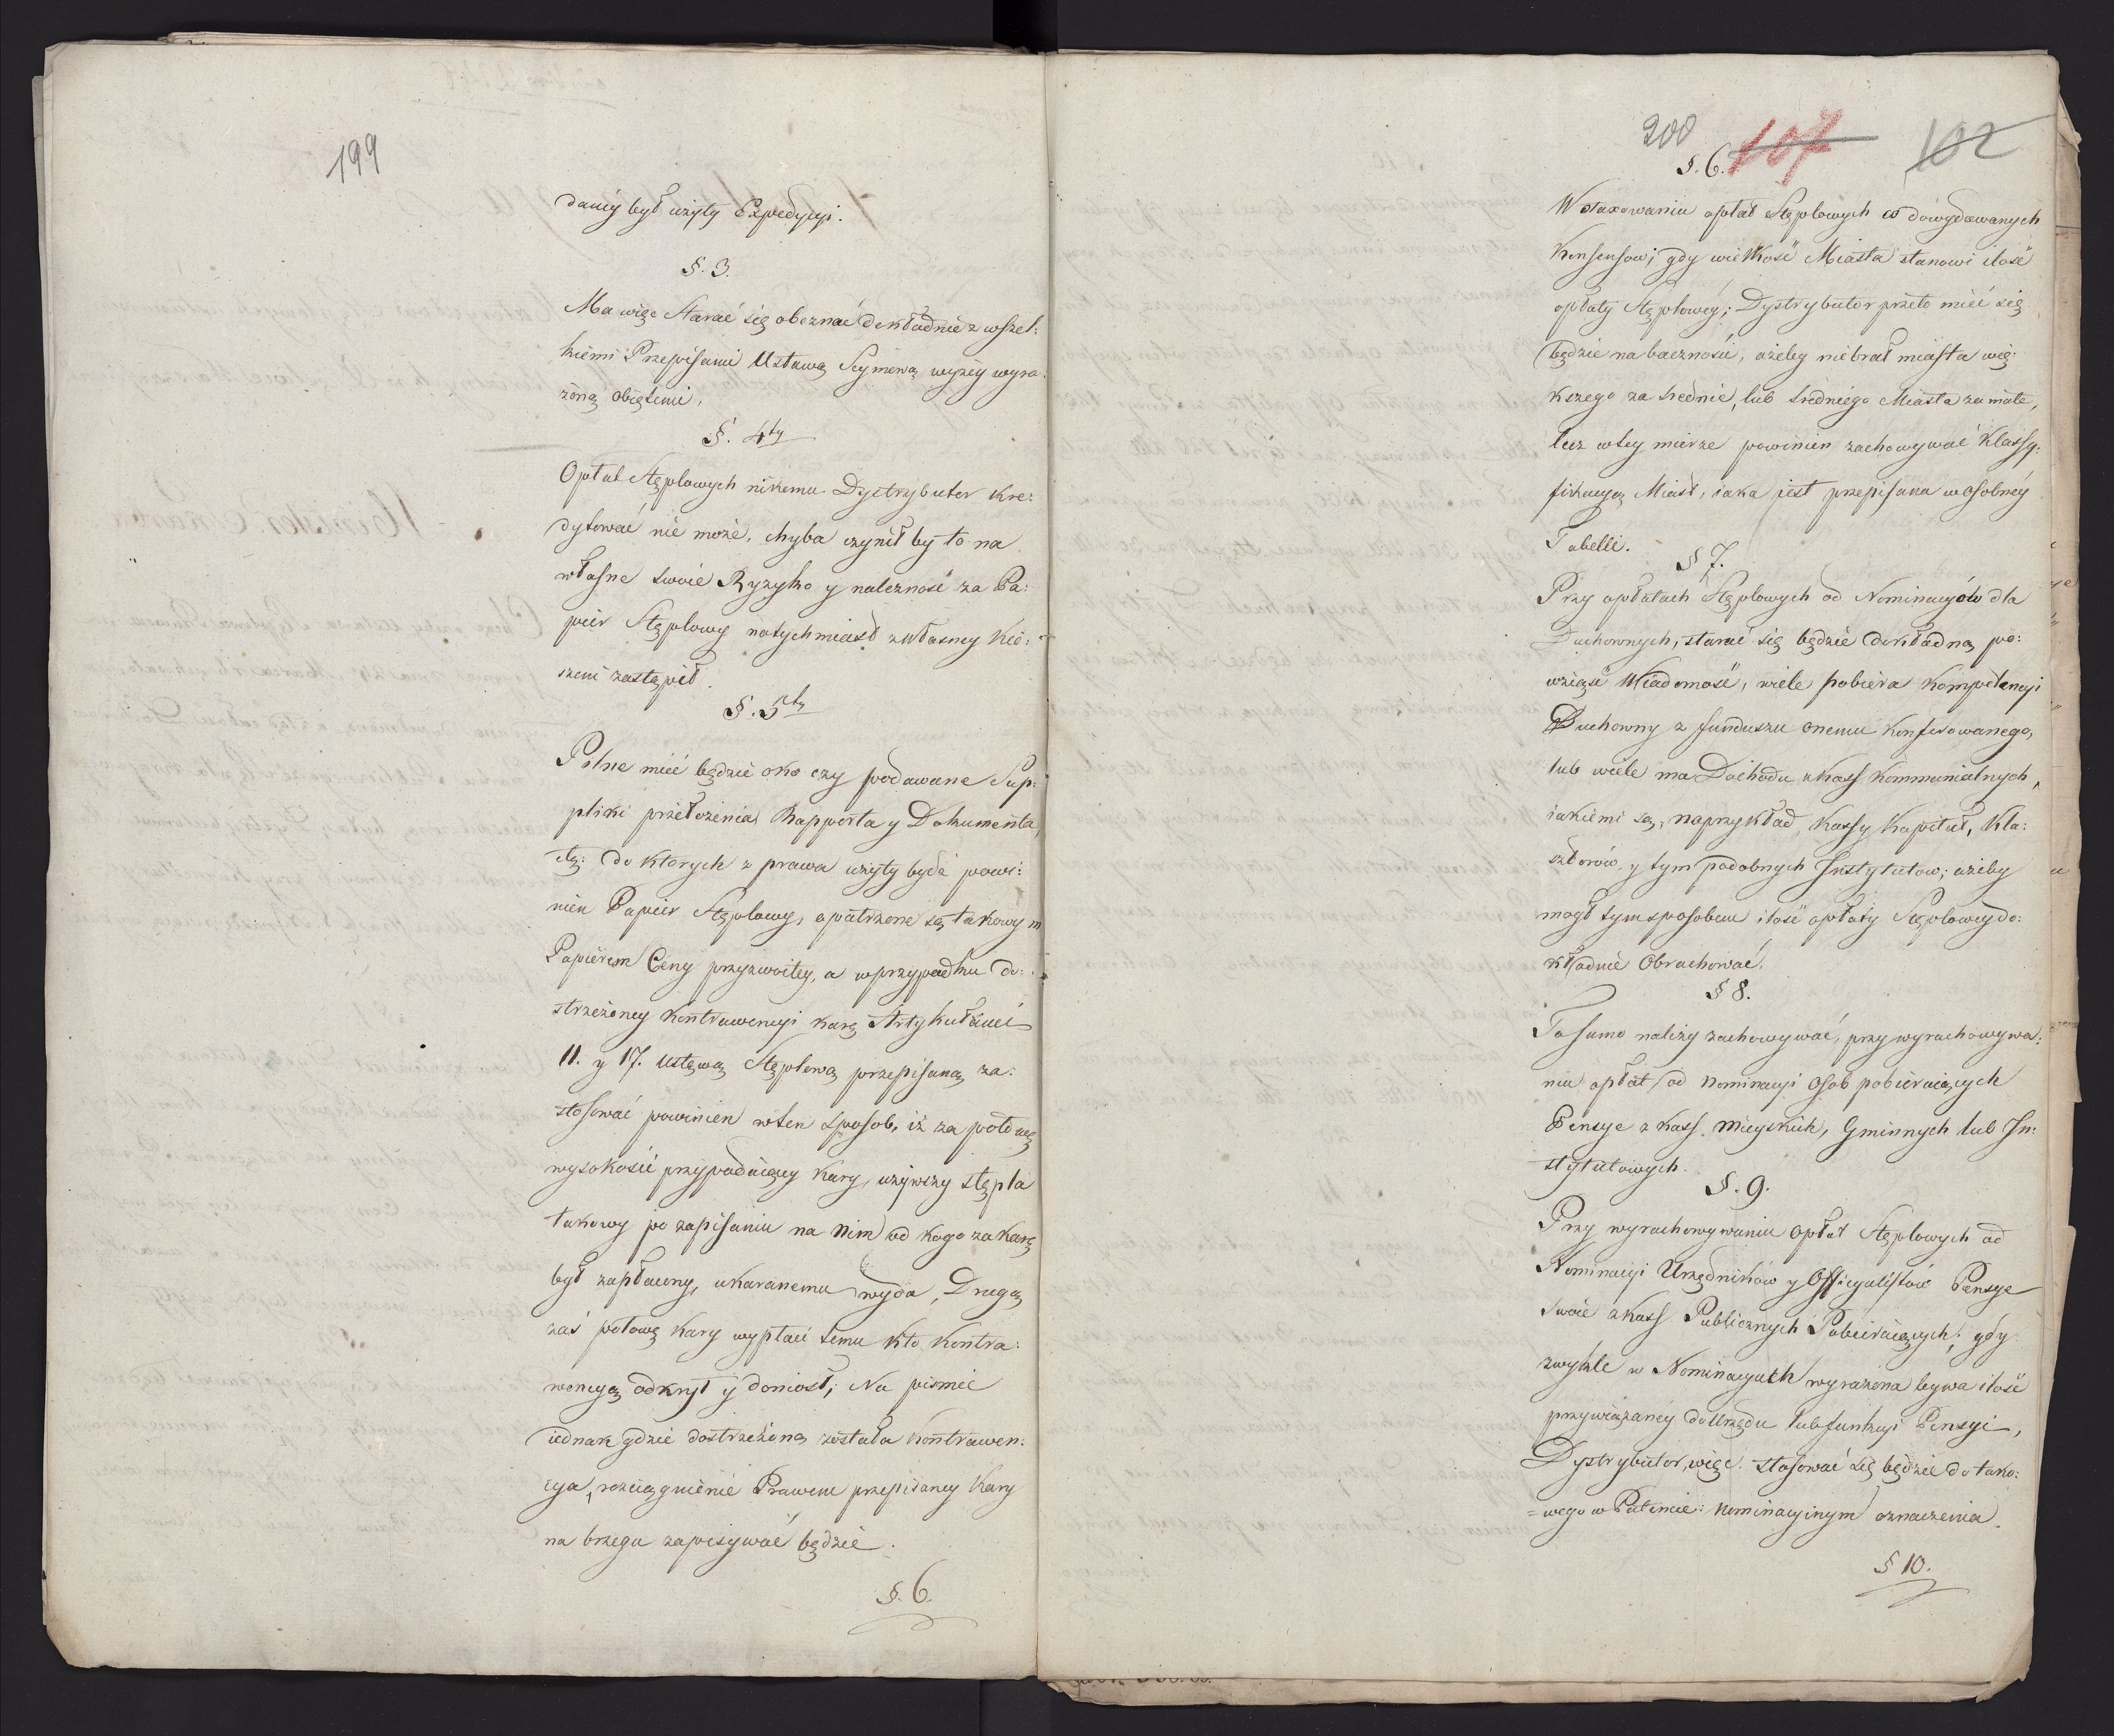 199
daney był użyty Expedycyi.
§. 3.
Ma więc starać się obeznać dokładnie z wszel:
kiemi Przepisami Ustawą Seymową wyżey wyra:
żoną obiętemi.
§. 4ty
Opłat Stęplowych nikomu Dystrybutor kre:
dytować nie może, chyba czynił by to na
własne swoie Ryzyko y należność za Pa:
pier Stęplowy natychmiast z własney kie:
szeni zastąpił.
§. 5ty
Pilne mieć będzie oko czy podawane Sup:
pliki przełożenia Rapporta y Dokumenta,
etc: do ktorych z prawa użyty bydź powi:
nien Papier Stęplowy, opatrzone są takowym
Papierem Ceny przyzwoitey, a w przypadku do:
strzeżoney Kontrawencyi karę Artykułami
11. y 17. ustawą Stęplową przepisaną za:
stosować powinien w ten sposob, iż za połowę
wysokości przypadaiącey Kary, używszy stępla
takowy po zapisaniu na nim od kogo za karę
był zapłacony, ukaranemu wyda, Drugą
zaś połowę Kary wypłaci temu kto Kontra:
wencyą odkrył y doniosł; Na pismie
iednak gdzie dostrzeżoną została Kontrawen:
cya, rozciągnienie Prawem przepisaney Kary
na brzegu zapisywać będzie.
§. 6.
200 107 102
§. 6.
W otaxowaniu opłat Stęplowych co do wydawanych
Konsensow, gdy wielkość Miasta stanowi ilość
opłaty Stęplowey; Dystrybutor przeto mieć się
będzie na baczności, ażeby niebrał miasta wię:
kszego za srednie, lub sredniego Miasta za małe,
lecz w tey mierze powinien zachowywać Klassy:
fikacyą Miast, iaka jest przepisana w osobney
Tabelli.
§ 7.
Przy opłatach Stęplowych od Nominacyów dla
Duchownych, starać się będzie dokładną po:
wziąść Wiadomość, wiele pobiera Kompetencyi
Duchowny z funduszu onemu konferowanego,
lub wiele ma Dochodu z Kass Kommunialnych,
iakiemi są, naprzykład, Kassy Kapituł, Kla:
sztorów y tym podobnych Instytutow; ażeby
mogł tym sposobem ilość opłaty Stęplowey do:
kładnie Obrachować.
§ 8.
To samo należy zachowywać, przy wyrachowywa:
niu opłat od nominacyi osob pobieraiących
Pensye z kass Mieyskich, Gminnych lub In:
stytutowych.
§. 9.
Przy wyrachowywaniu opłat Stęplowych od
Nominacyi Urzędników y Officyalistów Pensye
swoie z Kass Publicznych Pobieraiących; gdy
zwykle w Nominacyach wyrażona bywa ilość
przywiązaney do Urzędu lub funkcyi Pensyi,
Dystrybutor, więc. stosować się będzie do tako:
=wego w Patencie: nominacyinym oznaczenia.
§ 10.